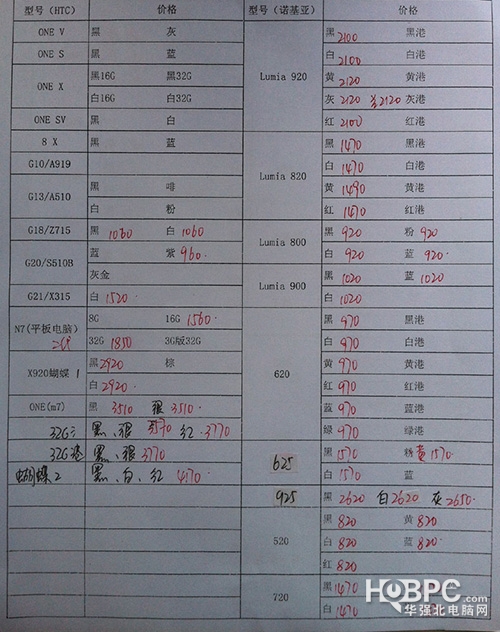 型号(HTC) 价格 型号(诺基亚) 价格
ONE V 黑 灰
ONE S 黑 蓝
ONE X 黑16G 黑32G
白16G 白32G
ONE SV 黑 白
8 X 黑 蓝
G10/A919
G13/A510 黑 啡
白 粉
G18/Z715 黑 1060 白 1060
G20/S510B 蓝 紫 960.
灰金
G21/X315 白 1520
N7(平板电脑) 8G 16G 1560
二代 32G 1850 3G版32G
X920蝴蝶 1 黑 2920 棕
白 2920
ONE(m7) 黑 3510 银 3510
32G 黑、银 3570 红 3770
32G港 黑、银 3770
蝴蝶2 黑、白、红 4170
Lumia 920 黑 2100 黑港
白 2100 白港
黄 2120 黄港
灰 2120 2120 灰港
红 2100 红港
Lumia 820 黑 1470 黑港
白 1470 白港
黄 1490 黄港
红 1470 红港
Lumia 800 黑 920 粉 920
白 920 蓝 920
Lumia 900 黑 1020 蓝 1020
白 1020
620 黑 970 黑港
白 970 白港
黄 970 黄港
红 970 红港
蓝 970 蓝港
绿 970 绿港
625 黑 1570 粉 黄 1570
白 1570 蓝
925 黑 2620 白2620 灰2650
520 黑 820 黄 820
白 820 蓝 820
红 820
720 黑 1470
白 1470
HQBPC.com
华强北电脑网